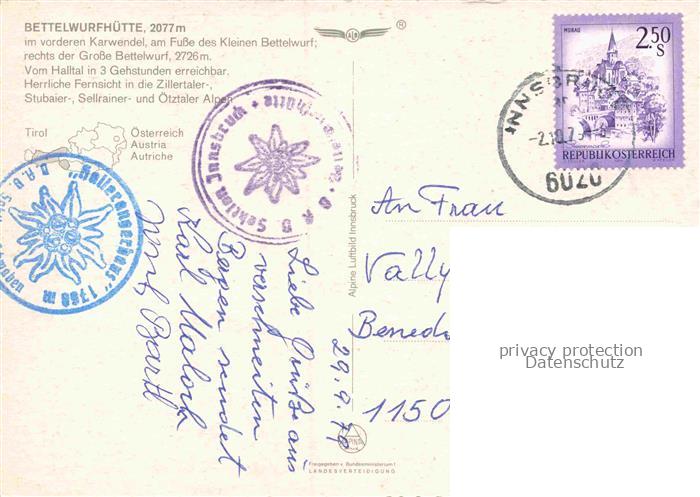 BETTELWURFHÜTTE, 2077 m
im vorderen Karwendel, am Fuße des Kleinen Bettelwurf;
rechts der Große Bettelwurf, 2726 m.
Vom Halltal in 3 Gehstunden erreichbar.
Herrliche Fernsicht in die Zillertaler-,
Stubaier-, Sellrainer- und Ötztaler Alpen
Tirol
Österreich
Austria
Autriche
®
MURAU
2.50
S
REPUBLIK ÖSTERREICH
INNSBRUCK
6020
Sektion Innsbruck
"Hallerangerhaus" 1768 m
Liebe Grüße aus
verschneiten
Bergen sendet
Karl
29.9.
Alpine Luftbild Innsbruck
An Frau
Vally
Bened
1150
privacy protection
Datenschutz
ALPINE
Freigegeben v. Bundesministerium f.
LANDESVERTEIDIGUNG